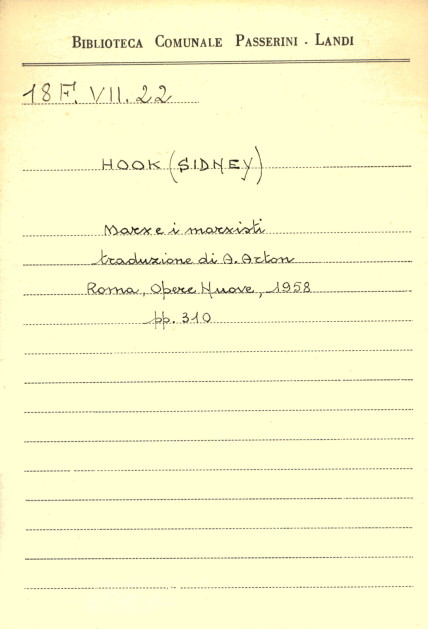 BIBLIOTECA COMUNALE PASSERINI - LANDI
18 F. VII. 22
HOOK (SIDNEY)
Marx e i marxisti
traduzione di A. Acton
Roma, Opere Nuove, 1958
pp. 310